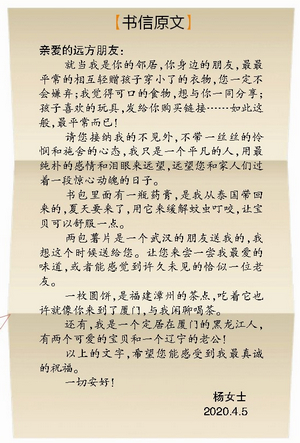 【书信原文】
亲爱的远方朋友：
就当我是你的邻居，你身边的朋友，最最
平常的相互轻赠孩子穿小了的衣物，您一定不
会嫌弃；我觉得可口的食物，想与你一同分享；
孩子喜欢的玩具，发给你购买链接……如此这
般，最平常而已！
请您接纳我的不见外，不带一丝丝的怜
悯和施舍的心态，我只是一个平凡的人，用最
纯朴的感情和泪眼来远望，远望您和家人们过
着一段惊心动魄的日子。
书包里面有一瓶药膏，是我从泰国带回
来的，夏天要来了，用它来缓解蚊虫叮咬，让宝
贝可以舒服一点。
两包薯片是一个武汉的朋友送我的，我
想这个时候送给您。让您来尝一尝我最爱的
味道，或者能感觉到许久未见的恰似一位老
友。
一枚圆饼，是福建漳州的茶点，吃着它也
许就像你来到了厦门，与我闲聊喝茶。
还有，我是一个定居在厦门的黑龙江人，
有两个可爱的宝贝和一个辽宁的老公！
以上的文字，希望您能感受到我最真诚
的祝福。
一切安好！
杨女士
2020.4.5